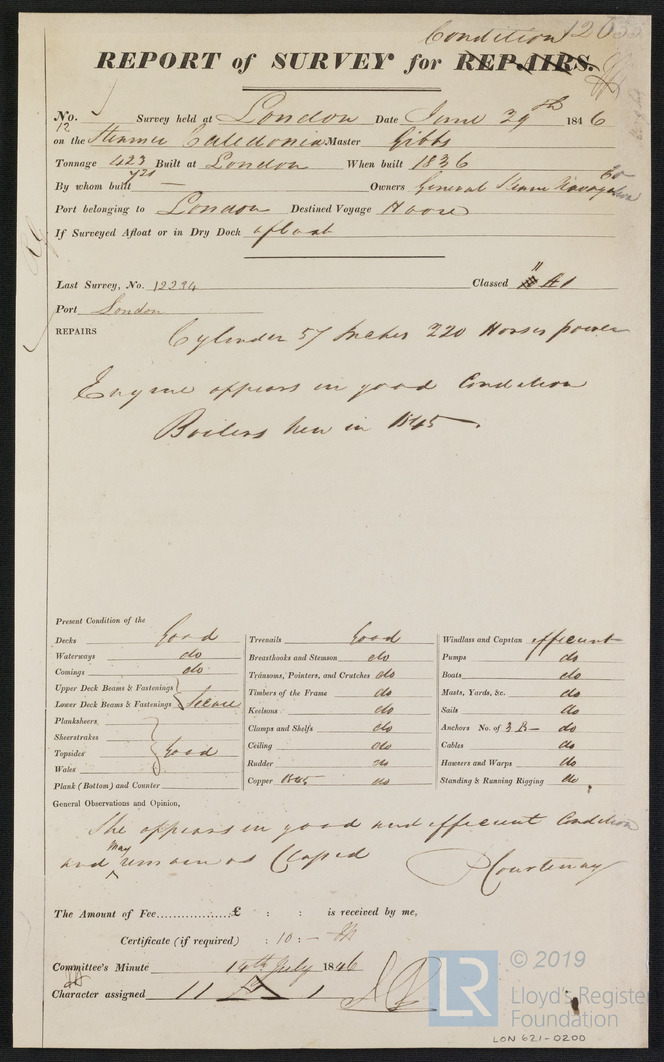 Condition
REPORT of SURVEY for REPAIRS.
No. 12 Survey held at London Date June 29th 1846
on the Steamer Caledonia Master Gibbs
Tonnage 423 Built at London When built 1836
By whom built — Owners General Steam Navigation Co
Port belonging to London Destined Voyage Havre
If Surveyed Afloat or in Dry Dock afloat
Last Survey, No. 12234 Classed A1
Port London
REPAIRS Cylinder 57 Inches 220 Horses power
Engine appears in good Condition
Boilers new in 1845.
Present Condition of the
Decks Good
Waterways do
Comings do
Upper Deck Beams & Fastenings
Lower Deck Beams & Fastenings Secure
Planksheers
Sheerstrakes
Topsides Good
Wales
Plank (Bottom) and Counter
Treenails Good
Breasthooks and Stemson do
Transoms, Pointers, and Crutches do
Timbers of the Frame do
Keelsons do
Clamps and Shelfs do
Ceiling do
Rudder do
Copper 1845 do
Windlass and Capstan efficient
Pumps do
Boats do
Masts, Yards, &c. do
Sails do
Anchors No. of 3 B— do
Cables do
Hawsers and Warps do
Standing & Running Rigging do
General Observations and Opinion,
She appears in good and efficient Condition
and may remain as Classed P Courtenay
The Amount of Fee..................£ : : is received by me,
Certificate (if required) : 10 : —
Committee's Minute 14th July 1846
Character assigned
© 2019
LR
Lloyd's Register
Foundation
LON 621-0200